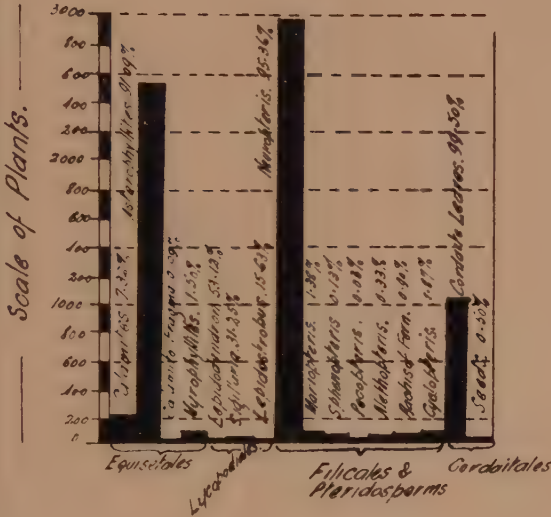 Scale of Plants.
3000
800
600
400
200
2000
800
600
400
200
1000
800
600
400
200
0
Asterophyllites. 91.09%
Lepidodendron. 53.12%
Sigillaria. 31.25%
Lepidostrobus. 15.63%
Neuropteris. 95.36%
Mariopteris. 1.38%
Sphenopteris
Pecopteris.
Alethopteris.
Cyclopteris.
Cordaite Leaves. 99.50%
Seeds 0.50%
Equisetales
Lycopodiales.
Filicales &
Pteridosperms
Cordaitales